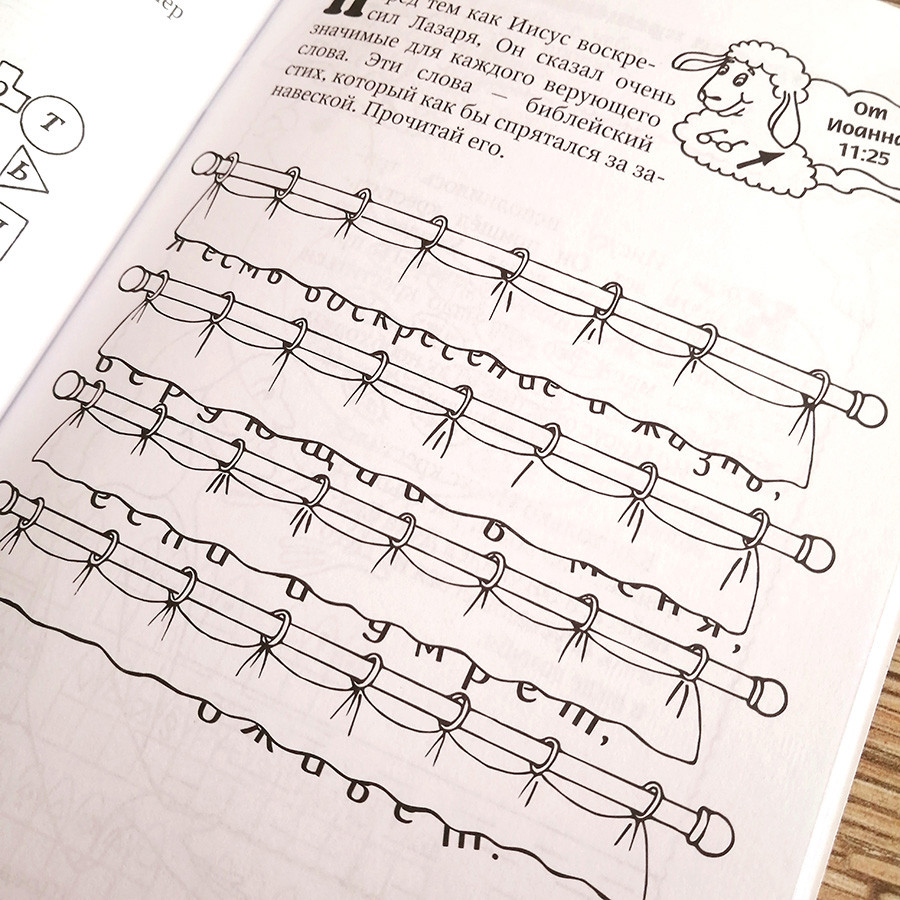 Перед тем как Иисус воскре-
сил Лазаря, Он сказал очень
значимые для каждого верующего
слова. Эти слова — библейский
стих, который как бы спрятался за за-
навеской. Прочитай его.
От
Иоанна
11:25
Я есть воскресение и жизнь,
верующий в Меня,
если и умрет,
оживет.
Т
Ь